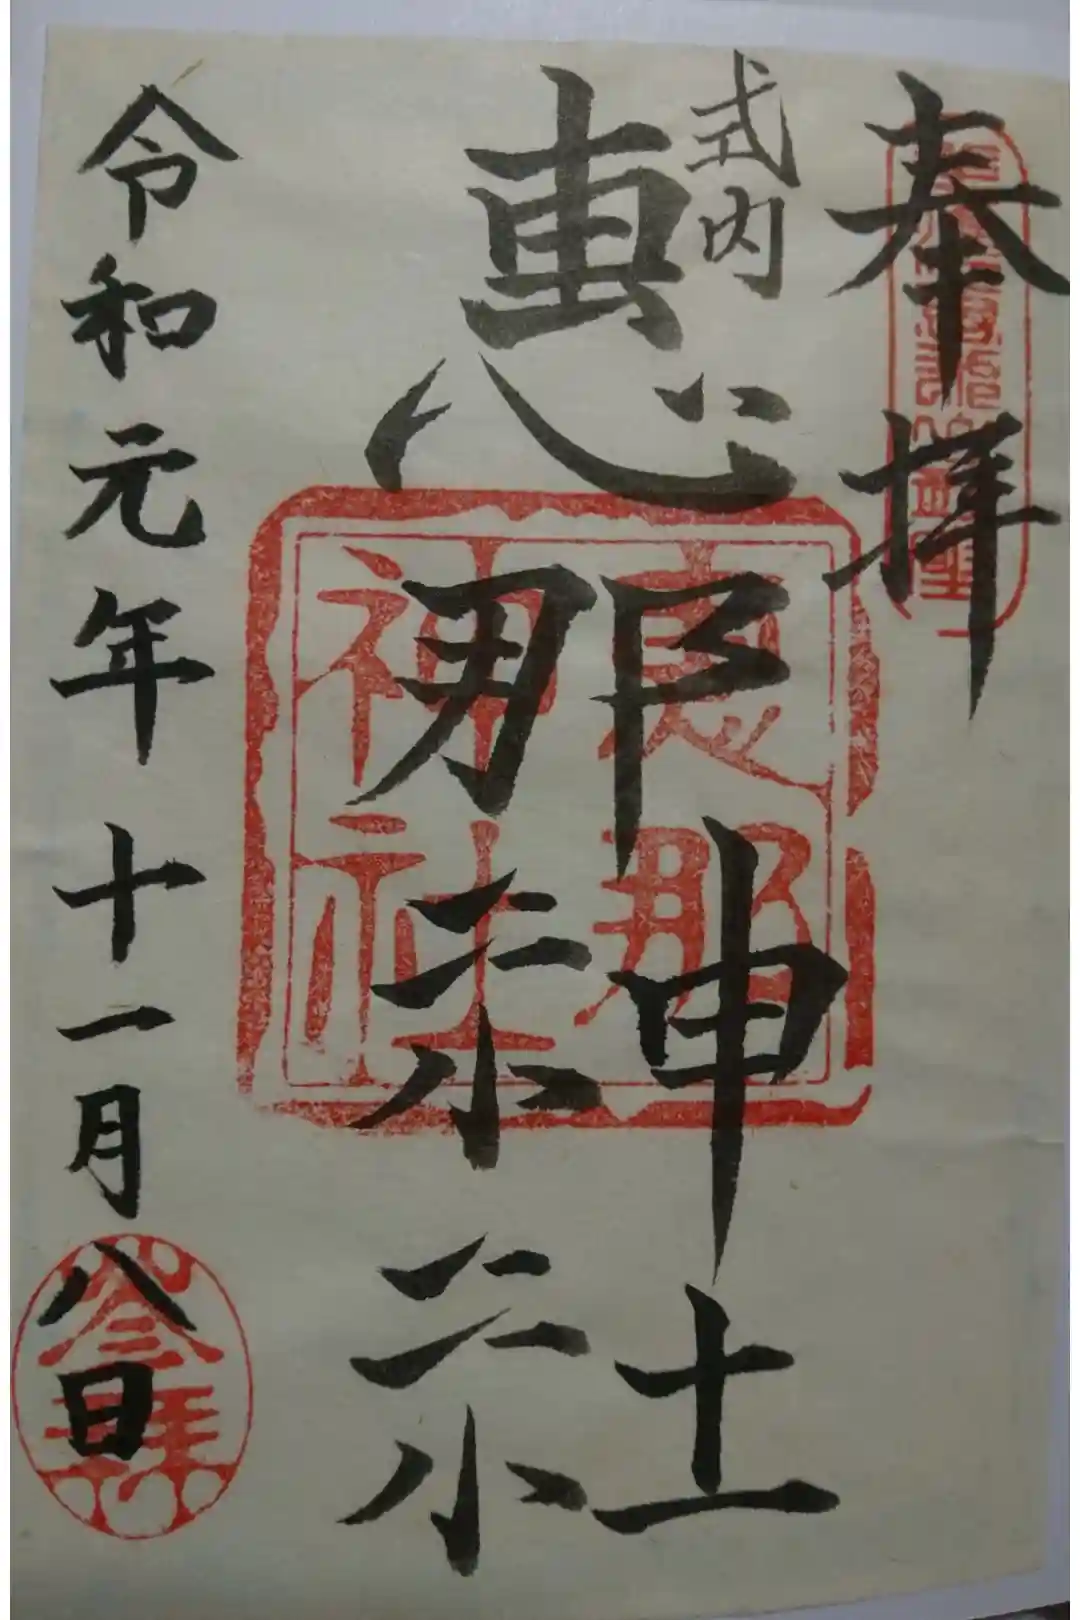 奉拝
式内
恵那神社
令和元年十一月八日
恵那
神社
参拝